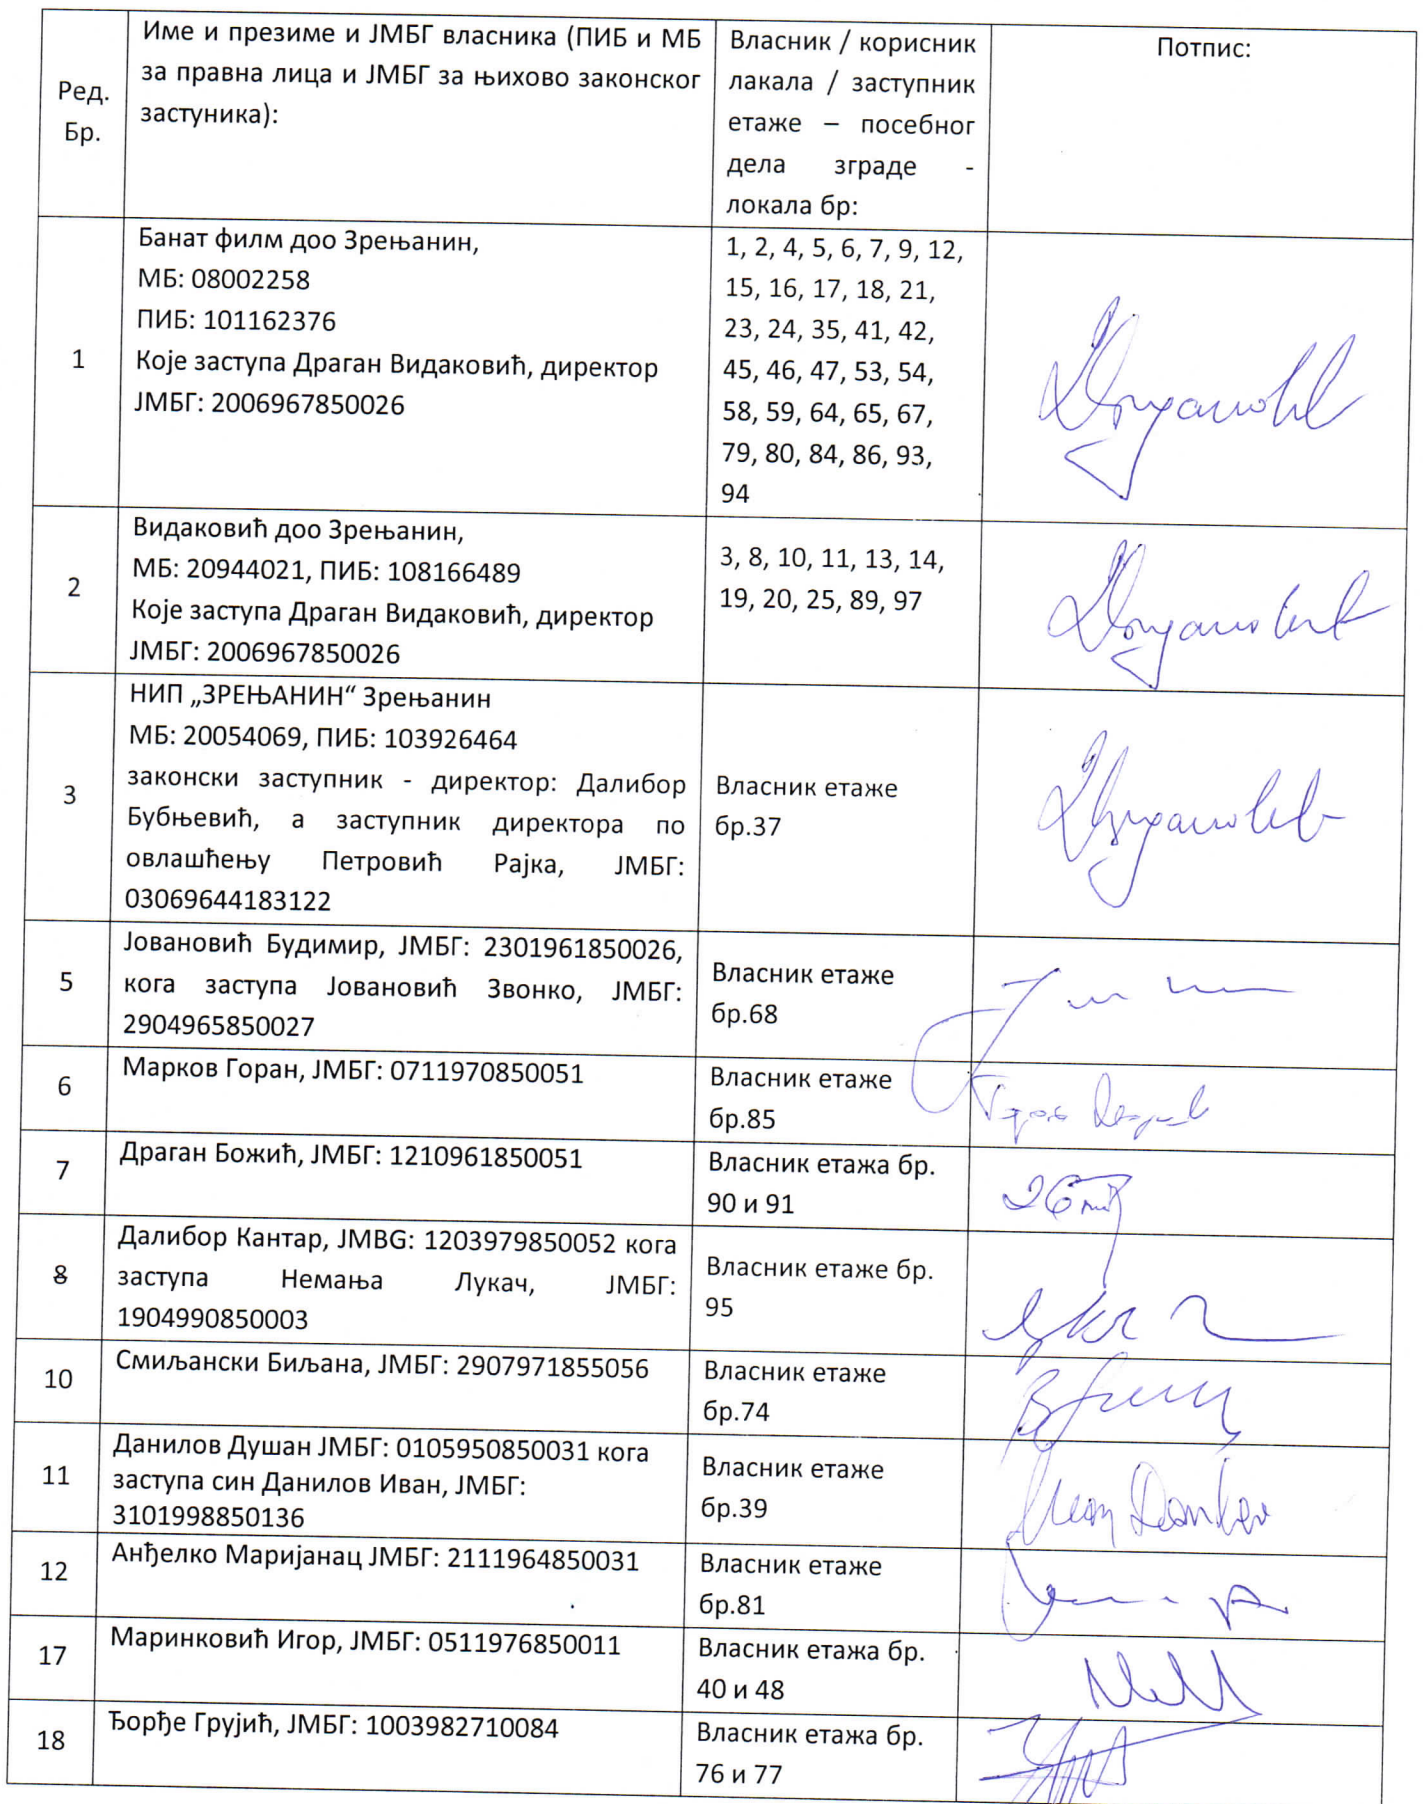 Ред.
Бр.
Име и презиме и ЈМБГ власника (ПИБ и МБ
за правна лица и ЈМБГ за њихово законског
застуника):
Власник / корисник
лакала / заступник
етаже – посебног
дела зграде -
локала бр:
Потпис:
1
Банат филм доо Зрењанин,
МБ: 08002258
ПИБ: 101162376
Које заступа Драган Видаковић, директор
ЈМБГ: 2006967850026
1, 2, 4, 5, 6, 7, 9, 12,
15, 16, 17, 18, 21,
23, 24, 35, 41, 42,
45, 46, 47, 53, 54,
58, 59, 64, 65, 67,
79, 80, 84, 86, 93,
94
2
Видаковић доо Зрењанин,
МБ: 20944021, ПИБ: 108166489
Које заступа Драган Видаковић, директор
ЈМБГ: 2006967850026
3, 8, 10, 11, 13, 14,
19, 20, 25, 89, 97
3
НИП „ЗРЕЊАНИН“ Зрењанин
МБ: 20054069, ПИБ: 103926464
законски заступник - директор: Далибор
Бубњевић, а заступник директора по
овлашћењу Петровић Рајка, ЈМБГ:
03069644183122
Власник етаже
бр.37
5
Јовановић Будимир, ЈМБГ: 2301961850026,
кога заступа Јовановић Звонко, ЈМБГ:
2904965850027
Власник етаже
бр.68
6
Марков Горан, ЈМБГ: 0711970850051
Власник етаже
бр.85
7
Драган Божић, ЈМБГ: 1210961850051
Власник етажа бр.
90 и 91
8
Далибор Кантар, JMBG: 1203979850052 кога
заступа Немања Лукач, ЈМБГ:
1904990850003
Власник етаже бр.
95
10
Смиљански Биљана, ЈМБГ: 2907971855056
Власник етаже
бр.74
11
Данилов Душан ЈМБГ: 0105950850031 кога
заступа син Данилов Иван, ЈМБГ:
3101998850136
Власник етаже
бр.39
12
Анђелко Маријанац ЈМБГ: 2111964850031
Власник етаже
бр.81
17
Маринковић Игор, ЈМБГ: 0511976850011
Власник етажа бр.
40 и 48
18
Ђорђе Грујић, ЈМБГ: 1003982710084
Власник етажа бр.
76 и 77